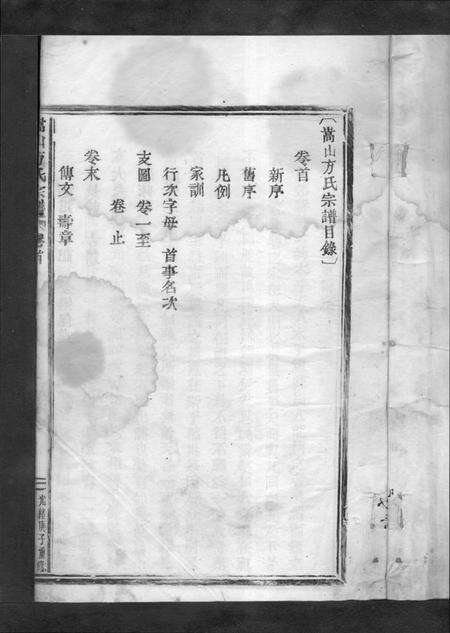 〔嵩山方氏宗譜目錄〕
卷首
新序
舊序
凡例
家訓
行次字母 首事名次
支圖 卷一至
卷 止
卷末
傳文 壽章
嵩山方氏宗譜 卷首
光緒庚子重修